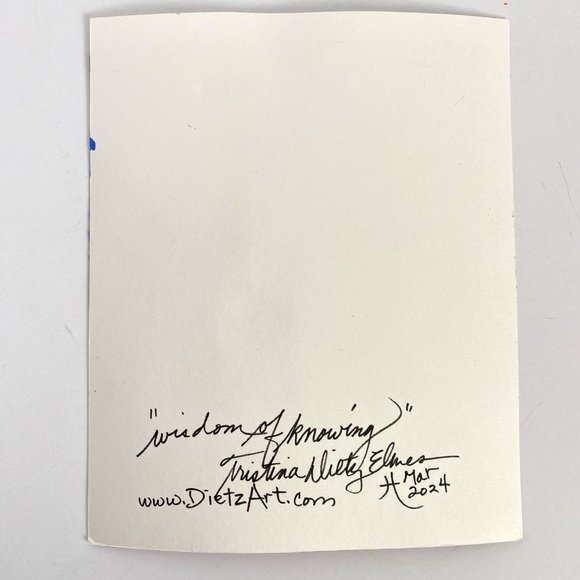 "wisdom of knowing"
Tristina Dietz Elmes
www.DietzArt.com Mar
2024